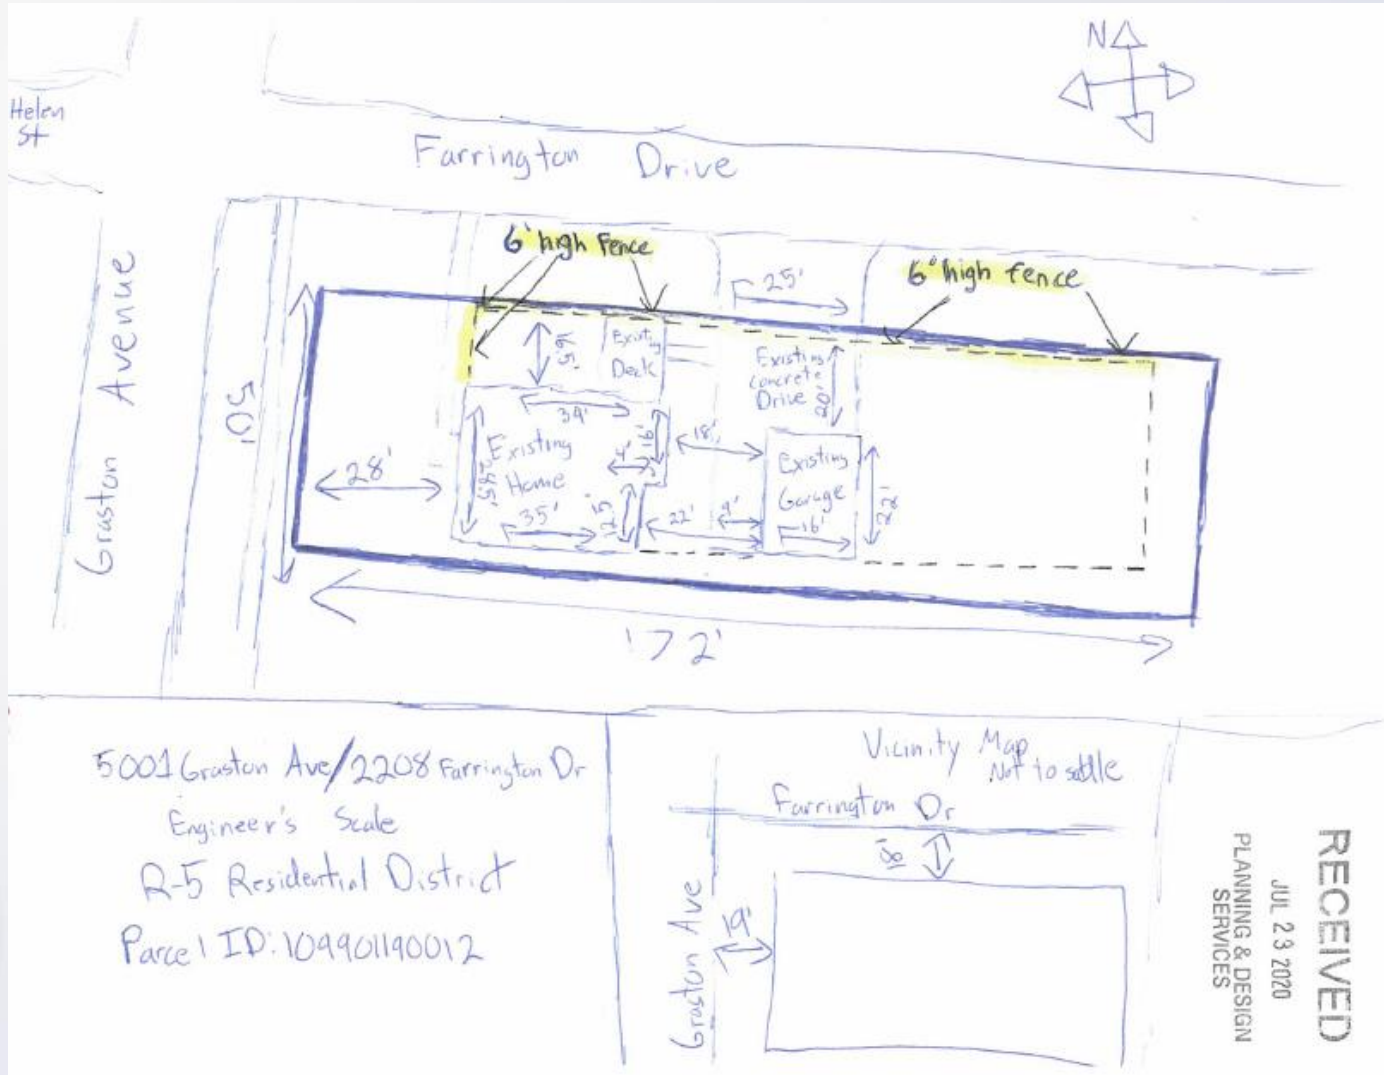 N
Helen
St
Farrington Drive
6' high Fence
6' high fence
25'
Graston Avenue
50'
16.5'
Existing
Deck
Existing
Concrete
Drive
20'
34'
28'
Existing
Home
24.5'
4'
16'
18'
Existing
Garage
22'
35'
12.5
22'
9'
16'
172'
5001 Graston Ave/2208 Farrington Dr
Engineer's Scale
R-5 Residential District
Parcel ID: 109901190012
Vicinity Map
Not to
Farrington Dr
Graston Ave
19'
RECEIVED
JUL 23 2020
PLANNING & DESIGN
SERVICES